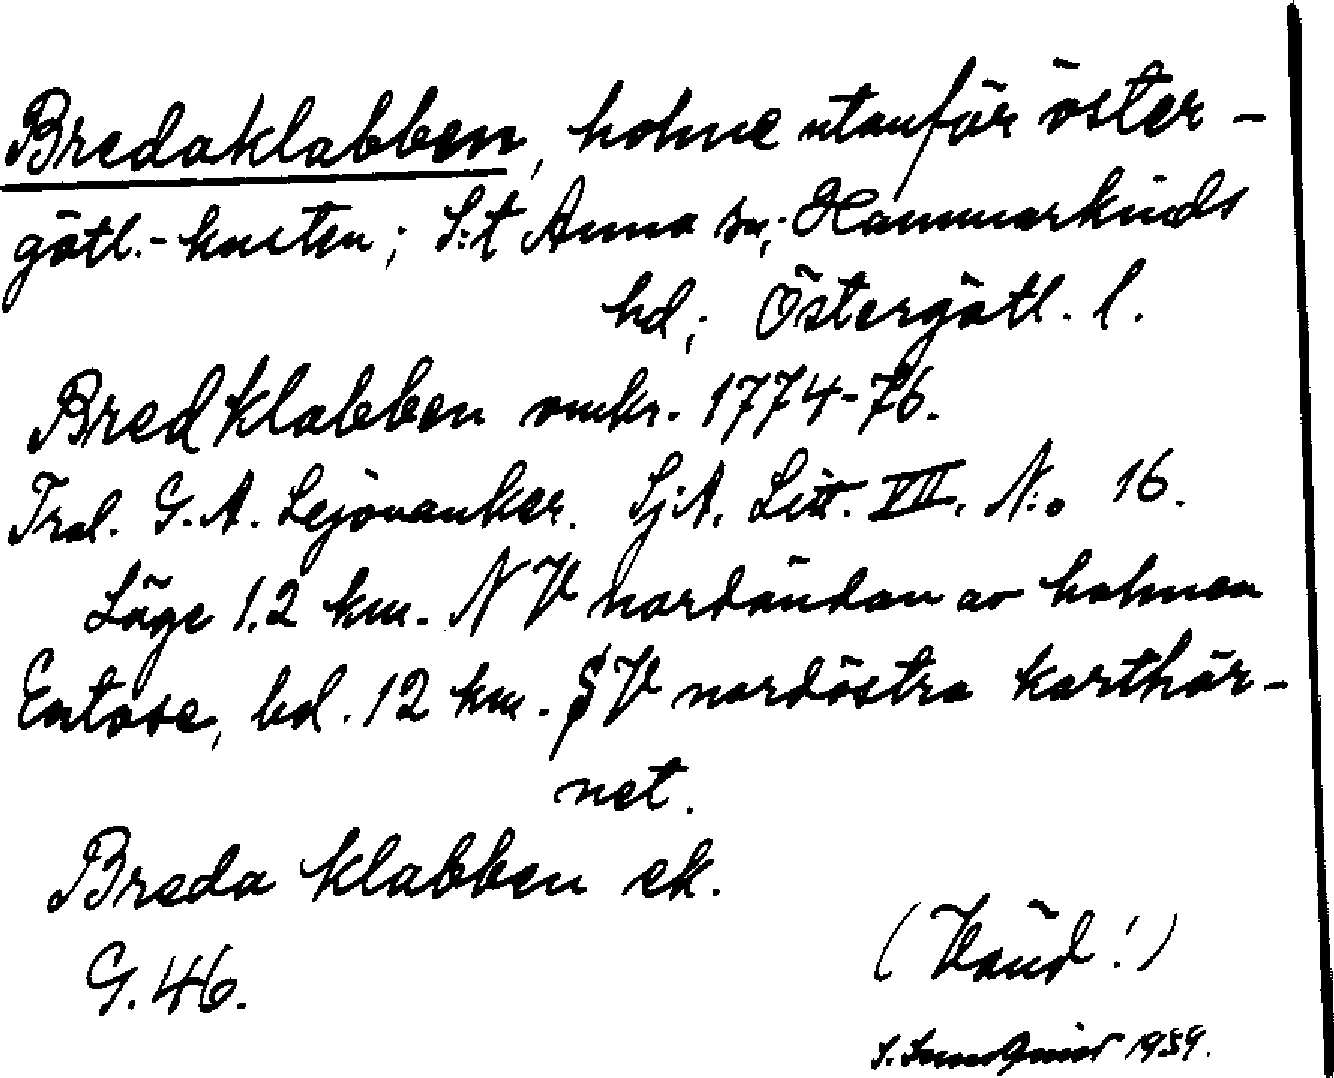 Bredaklabben, holme utanför öster-
götl.-kusten; S:t Anna sn; Hammarkinds
hd; Östergötl. l.
Bredklabben omkr. 1774-76.
Tral. G. A. Lejonanker. SjA. Litt. VII. N:o 16.
Läge 1,2 km. NV nordändan av holmen
Entose, bel. 12 km. SV nordöstra karthör-
net.
Breda klabben ek.
G. 46.
(Vänd!)
S. 1959.